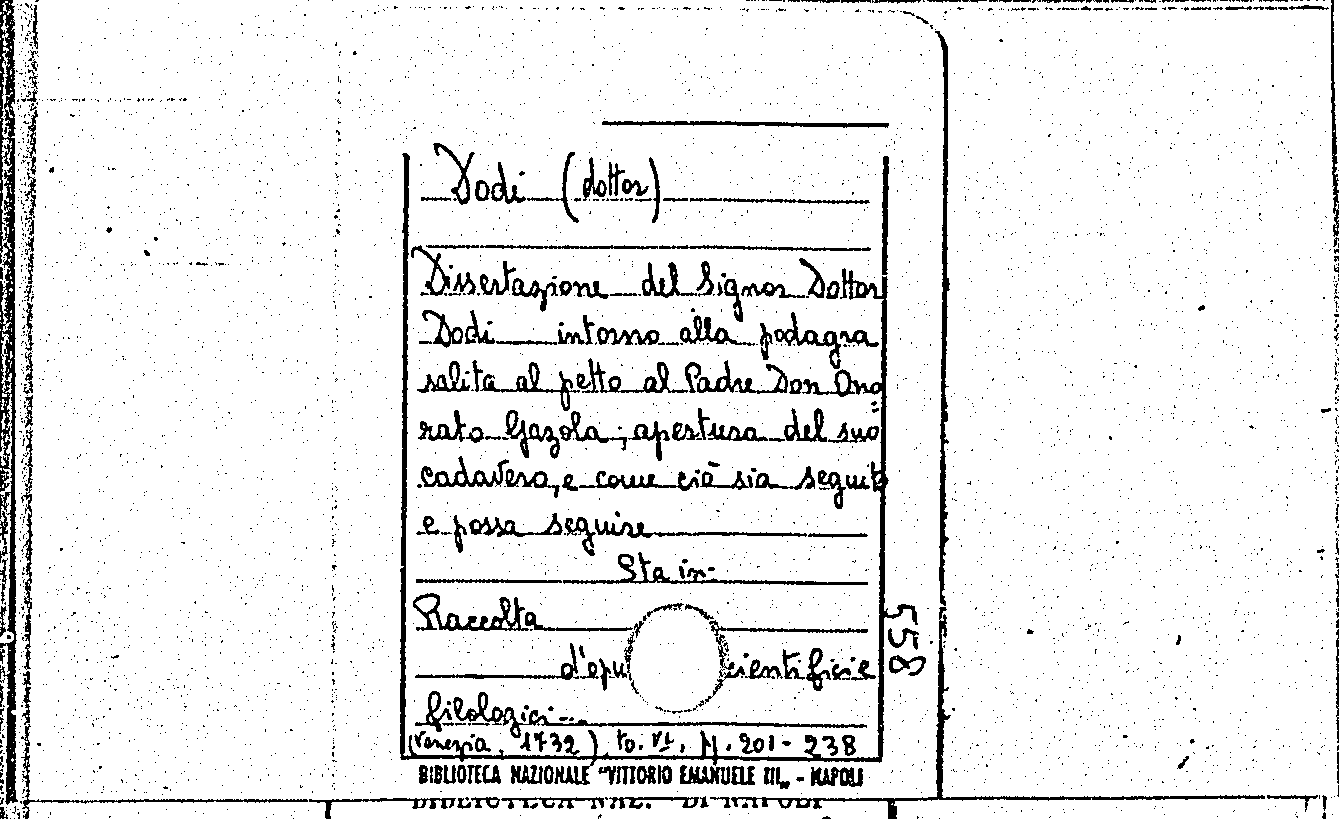 Dodi (dottor)
Dissertazione del Signor Dottor
Dodi intorno alla podagra
salita al petto al Padre Don Ono=
rato Gazola; apertura del suo
cadavero, e come ciò sia seguito
e possa seguire
Sta in:
Raccolta
d'opu cientifici e
filologici...
(Venezia, 1732) to. VI, pp. 201-238
558
BIBLIOTECA NAZIONALE "VITTORIO EMANUELE III" - NAPOLI
BIBLIOTECA NAZ. DI NAPOLI